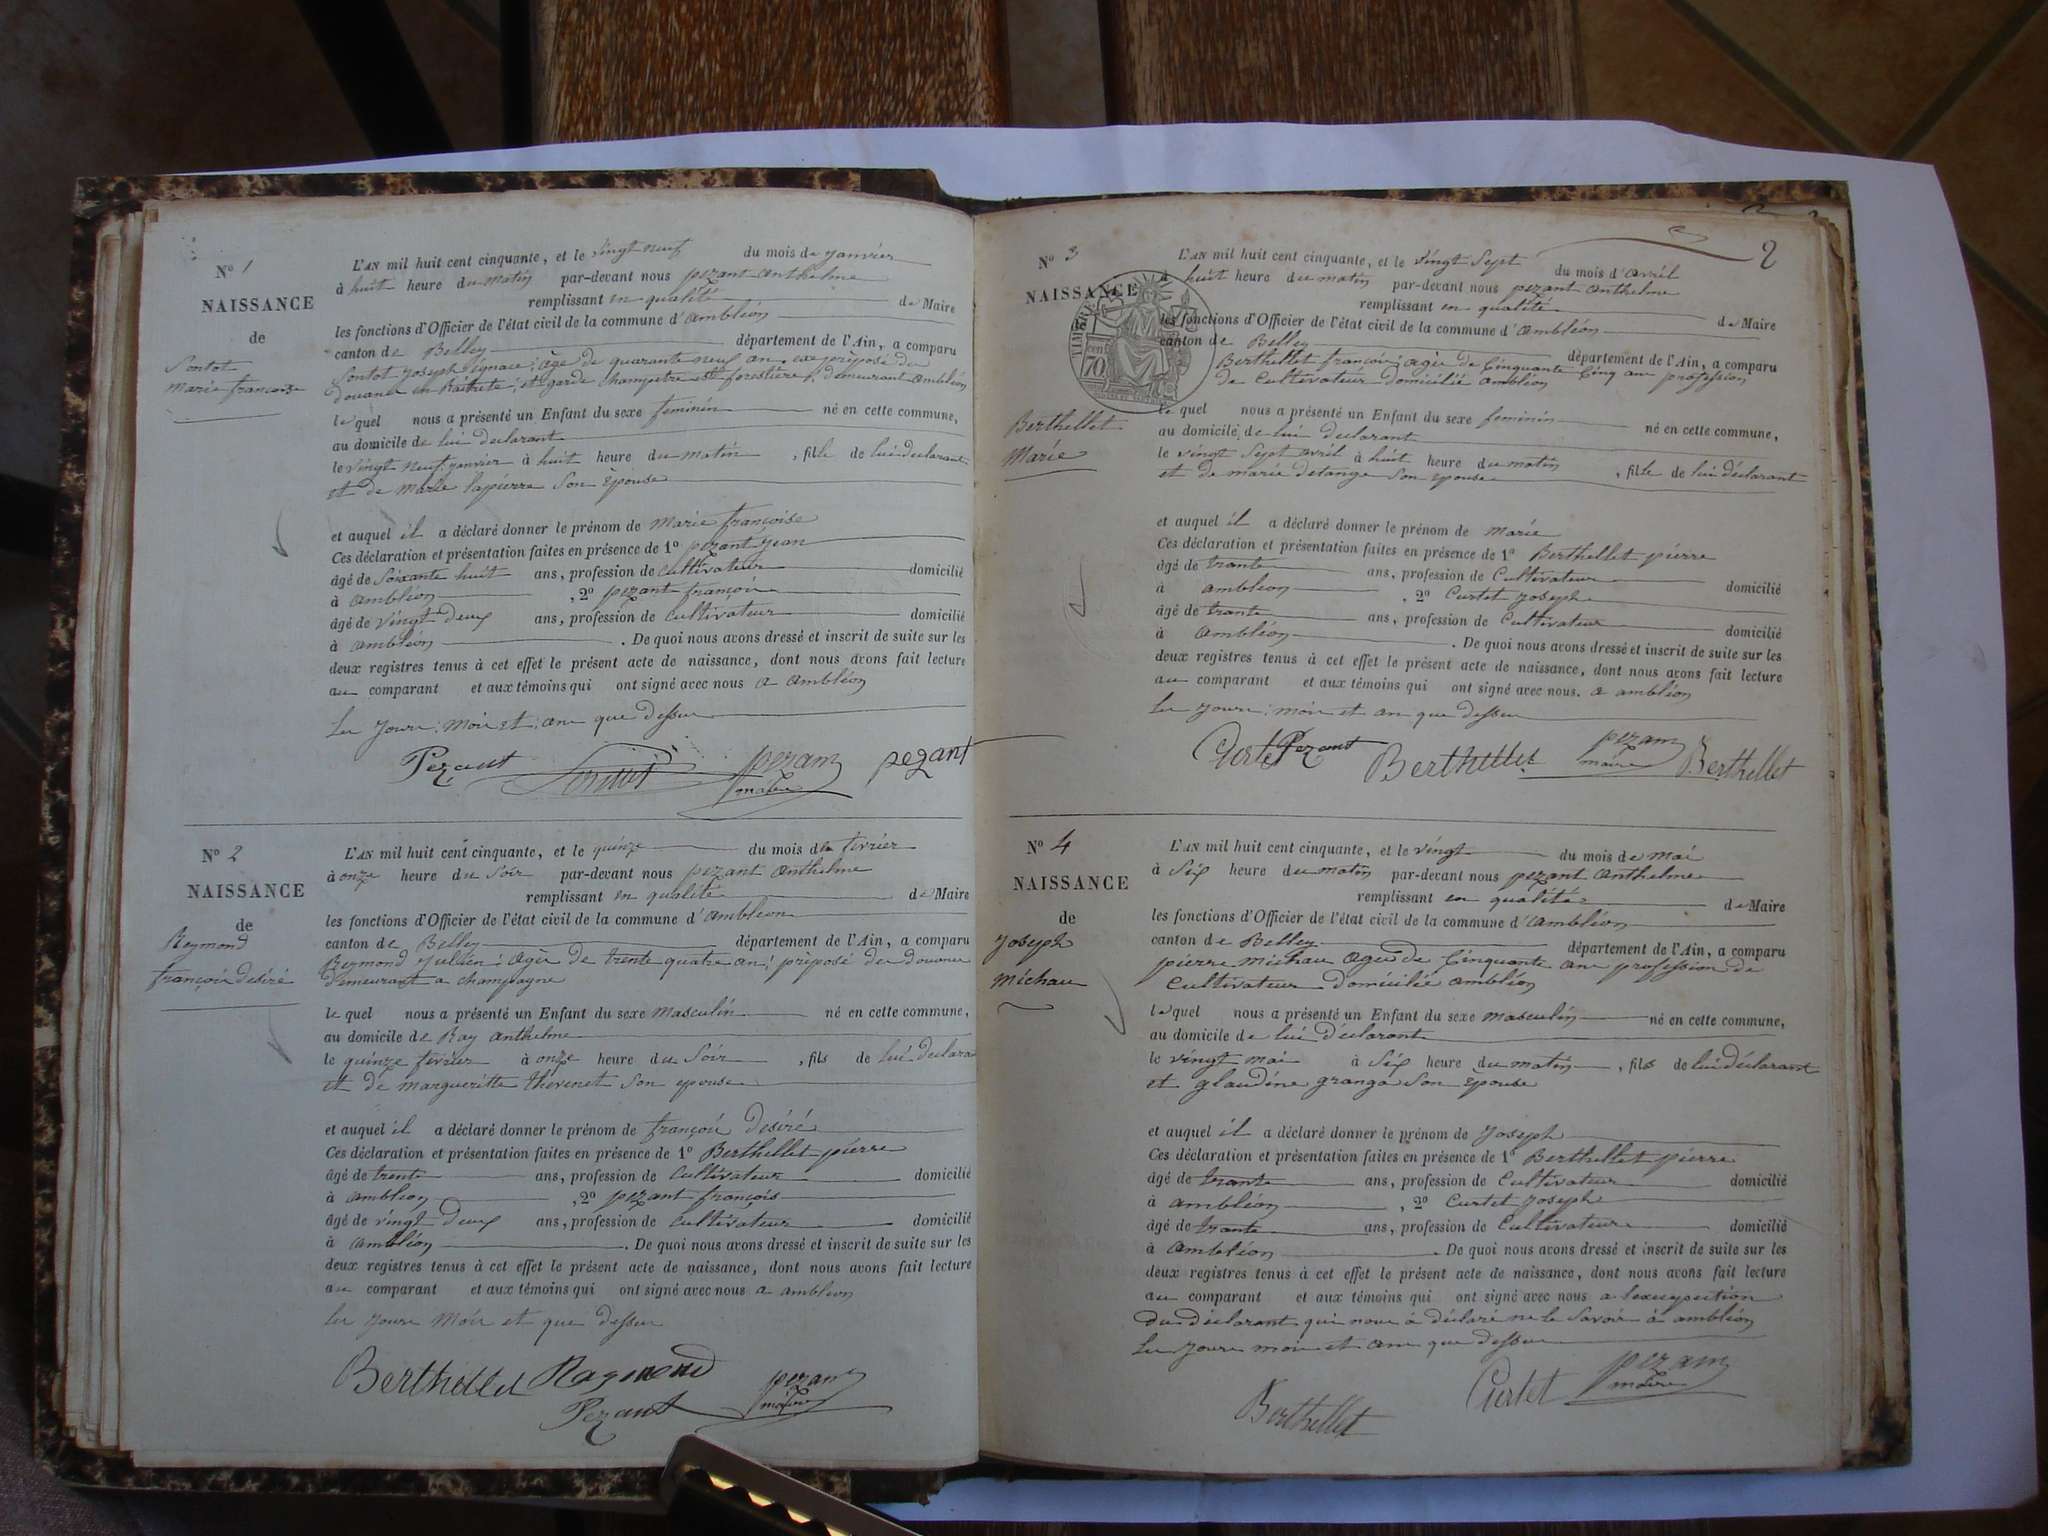 Nº 1
NAISSANCE
de
Sontot
Marie françoise
L'AN mil huit cent cinquante, et le vingt neuf du mois de janvier
à huit heure du matin par-devant nous pezant anthelme
remplissant en qualité de Maire
les fonctions d'Officier de l'état civil de la commune d'ambléon
canton de Belley département de l'Ain, a comparu
Sontot Joseph ignace; âgé de quarante neuf an. ex préposé de
douane en Raitrete; et garde champetre et forestière; demeurant ambléon
le quel nous a présenté un Enfant du sexe feminin né en cette commune,
au domicile de lui declarant
le vingt neuf janvier à huit heure du matin , fille de lui declarant
et de Marie lapierre son épouse
et auquel il a déclaré donner le prénom de marie françoise
Ces déclaration et présentation faites en présence de 1º pezant jean
âgé de soixante huit ans, profession de cultivateur domicilié
à ambléon , 2º pezant françois
âgé de vingt deux ans, profession de cultivateur domicilié
à ambléon . De quoi nous avons dressé et inscrit de suite sur les
deux registres tenus à cet effet le présent acte de naissance, dont nous avons fait lecture
au comparant et aux témoins qui ont signé avec nous a ambléon
les jours: mois et: an que dessus
Pezant pezant maire pezant
Nº 2
NAISSANCE
de
Reymond
françois désiré
L'AN mil huit cent cinquante, et le quinze du mois de fevrier
à onze heure du soir par-devant nous pezant anthelme
remplissant en qualité de Maire
les fonctions d'Officier de l'état civil de la commune d'ambleon
canton de Belley département de l'Ain, a comparu
Reymond Jullien: âgée de trente quatre an; préposé des douanes
demeurant a champagne
le quel nous a présenté un Enfant du sexe masculin né en cette commune,
au domicile de Ray anthelme
le quinze fevrier à onze heure du soir , fils de lui declara
et de margueritte thevenet son epouse
et auquel il a déclaré donner le prénom de françois désiré
Ces déclaration et présentation faites en présence de 1º Berthellet pierre
âgé de trente ans, profession de cultivateur domicilié
à ambleon , 2º pezant françois
âgé de vingt deux ans, profession de cultivateur domicilié
à ambléon . De quoi nous avons dressé et inscrit de suite sur les
deux registres tenus à cet effet le présent acte de naissance, dont nous avons fait lecture
au comparant et aux témoins qui ont signé avec nous a ambleon
les jours mois et que dessus
Berthellet Raymond
Pezant pezant maire
2
Nº 3
NAISSANCE
TIMBRE
70 cent
Berthellet
Marie
L'AN mil huit cent cinquante, et le vingt sept du mois d'avril
à huit heure du matin par-devant nous pezant anthelme
remplissant en qualité de Maire
les fonctions d'Officier de l'état civil de la commune d'ambléon
canton de Belley département de l'Ain, a comparu
Berthellet françois; âgée de cinquante cinq ans profession
de cultivateur domicilié ambléon
le quel nous a présenté un Enfant du sexe feminin né en cette commune,
au domicile de lui declarant
le vingt sept avril à huit heure du matin , fille de lui déclarant
et de marie detange son epouse
et auquel il a déclaré donner le prénom de marie
Ces déclaration et présentation faites en présence de 1º Berthellet pierre
âgé de trante ans, profession de cultivateur domicilié
à ambléon , 2º Curtet joseph
âgé de trante ans, profession de cultivateur domicilié
à ambléon . De quoi nous avons dressé et inscrit de suite sur les
deux registres tenus à cet effet le présent acte de naissance, dont nous avons fait lecture
au comparant et aux témoins qui ont signé avec nous. a ambléon
les jours: mois et an que dessus
Pezant Berthellet pezant maire Berthellet
Nº 4
NAISSANCE
de
Joseph
Michau
L'AN mil huit cent cinquante, et le vingt du mois de mai
à six heure du matin par-devant nous pezant anthelme
remplissant en qualité de Maire
les fonctions d'Officier de l'état civil de la commune d'ambléon
canton de Belley département de l'Ain, a comparu
pierre michau agé de cinquante an profession de
cultivateur domicilié ambléon
le quel nous a présenté un Enfant du sexe masculin né en cette commune,
au domicile de lui déclarant
le vingt mai à six heure du matin , fils de lui déclarant
et glaudine granga son épouse
et auquel il a déclaré donner le prénom de joseph
Ces déclaration et présentation faites en présence de 1º Berthellet pierre
âgé de trante ans, profession de cultivateur domicilié
à ambléon , 2º Curtet joseph
âgé de trante ans, profession de cultivateur domicilié
à ambléon . De quoi nous avons dressé et inscrit de suite sur les
deux registres tenus à cet effet le présent acte de naissance, dont nous avons fait lecture
au comparant et aux témoins qui ont signé avec nous a
du déclarant qui nous à déclaré ne le savoir à ambléon
les jours mois et an que dessus
Berthellet Curtet pezant maire